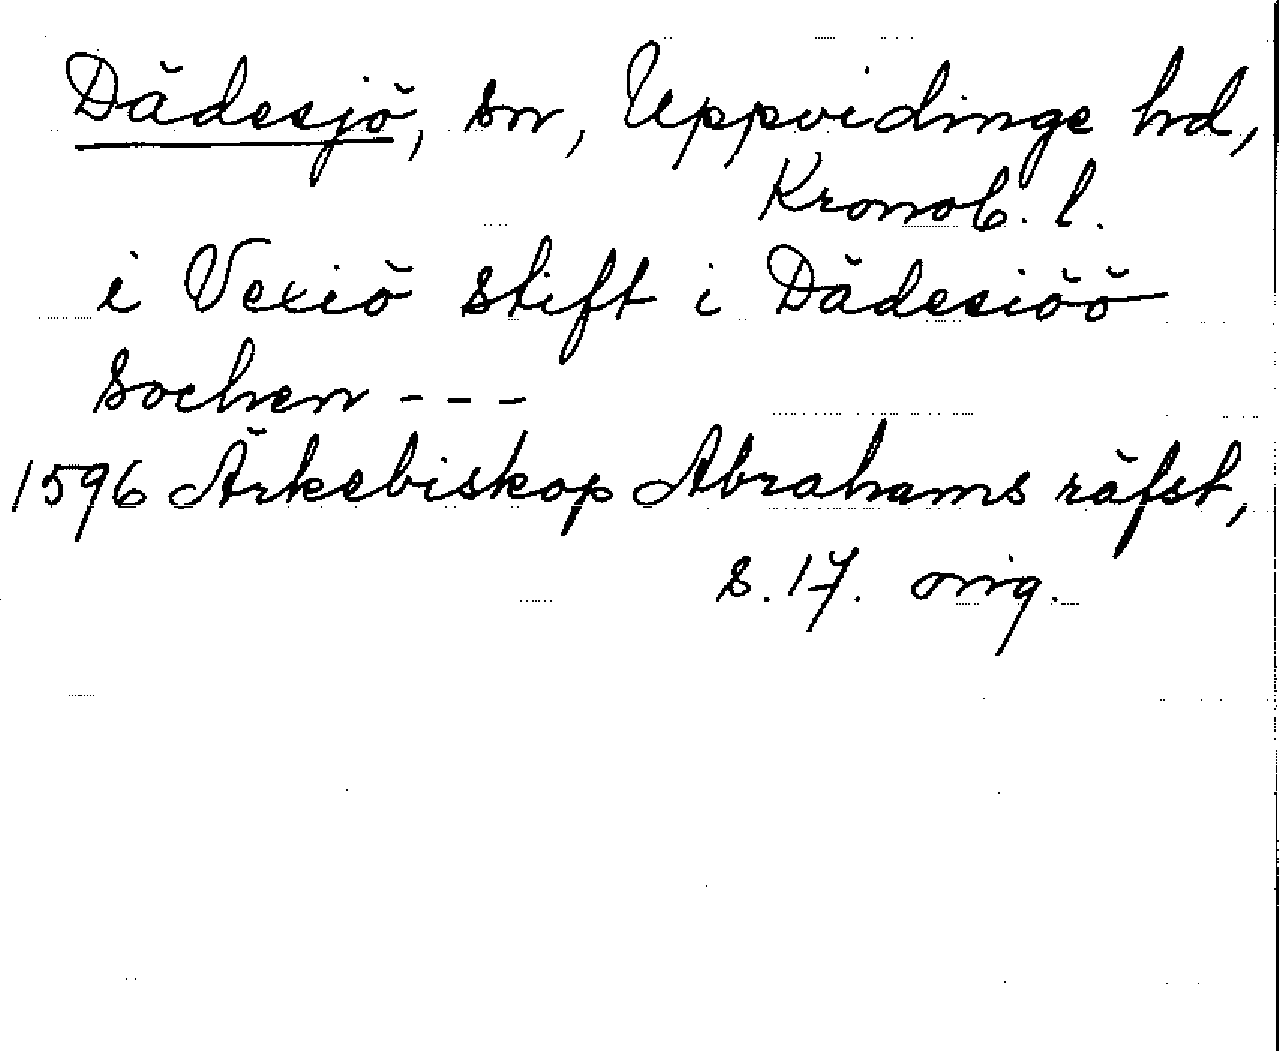 Dädesjö, sn, Uppvidinge hd,
Kronob. l.
i Vexiö stift i Dädesiöö
sochen ---
1596 Ärkebiskop Abrahams räfst,
s. 17. orig.